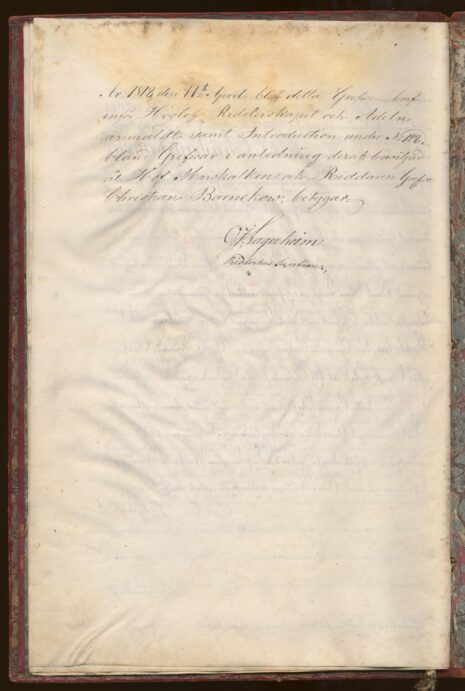 År 1812 den 11te April blef detta Grefve bref
inför Högloft. Ridderskapet och Adeln
anmäldt samt Introduction under No 120.
bland Grefvar i anledning deraf beviljad
åt Hof Marskalken och Riddaren Grefve
Christian Barnekow; betygar
Lagerheim
Riddarhus Secreterare,